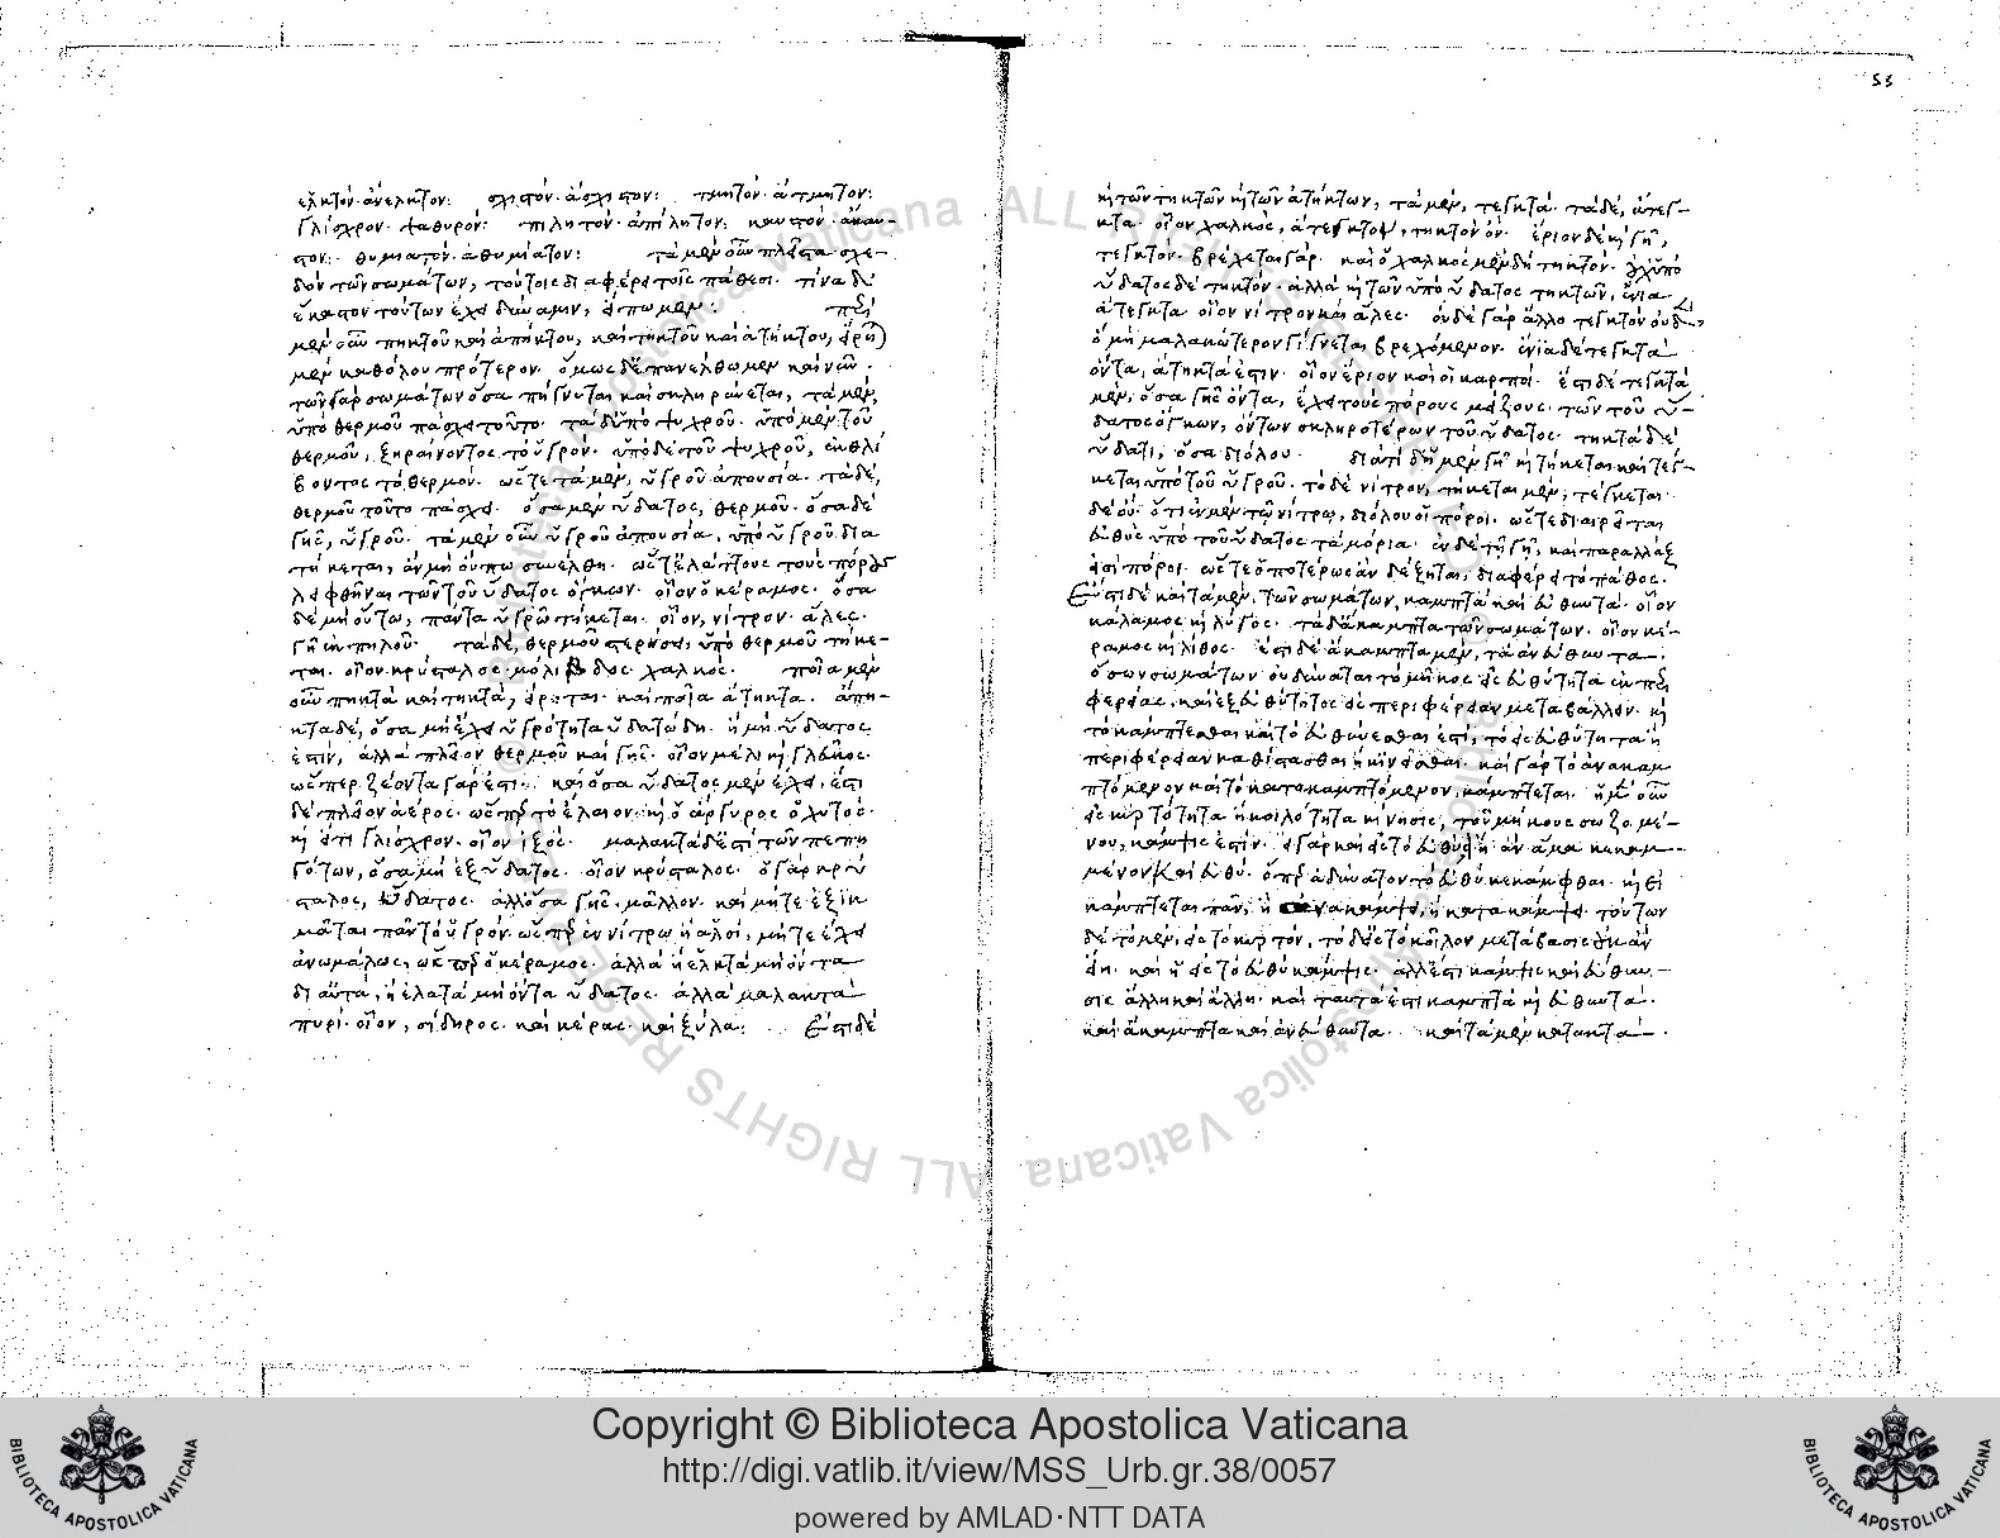 ἑλκτὸν ἀνέλκτον: σχιστόν· ἄσχιστον: τμητόν· ἄτμητον:
γλίσχρον· ψαθυρόν: πιλητόν· ἀπίλητον: καυστὸν· ἄκαυ-
στον: θυμιατόν· ἀθυμίατον: τὰ μὲν οὖν πλεῖστα σχε-
δὸν τῶν σωμάτων, τούτοις διαφέρει τοῖς πάθεσι· τίνα δὲ
ἕκαστον τούτων ἔχει δύναμιν, εἴπωμεν: περὶ
μὲν οὖν πηκτοῦ καὶ ἀπήκτου, καὶ τηκτοῦ καὶ ἀτήκτου, εἴρη)
μὲν καθόλου πρότερον· ὅμως δ' ἐπανέλθωμεν καὶ νῦν·
τῶν γὰρ σωμάτων ὅσα πήγνυται καὶ σκληρύνεται, τὰ μὲν,
ὑπὸ θερμοῦ πάσχει τοῦτο· τὰ δ' ὑπὸ ψυχροῦ· ὑπὸ μὲν τοῦ
θερμοῦ, ξηραίνοντος τὸ ὑγρόν· ὑπὸ δὲ τοῦ ψυχροῦ, ἐκθλί
βοντος τὸ θερμόν· ὥστε τὰ μὲν, ὑγροῦ ἀπουσία· τὰ δὲ,
θερμοῦ τοῦτο πάσχει· ὅσα μὲν ὕδατος, θερμοῦ· ὅσα δὲ
γῆς, ὑγροῦ· τὰ μὲν οὖν ὑγροῦ ἀπουσία, ὑπὸ ὑγροῦ δια
τήκεται, ἂν μὴ οὕτω συνέλθη· ὥστ' ἐλάττους τοὺς πόρους
λειφθῆναι τῶν τοῦ ὕδατος ὄγκων· οἷον ὁ κέραμος· ὅσα
δὲ μὴ οὕτω, πάντα ὑγρῶ τήκεται· οἷον, νίτρον· ἅλες·
γῆ ἐκ πηλοῦ· τὰ δὲ, θερμοῦ στερήσει, ὑπὸ θερμοῦ τήκε-
ται· οἷον κρύσταλος· μόλιβδος· χαλκός· ποῖα μὲν
οὖν πηκτὰ καὶ τηκτὰ, εἴρηται· καὶ ποῖα ἄτηκτα· ἄπη-
κτα δὲ, ὅσα μὴ ἔχει ὑγρότητα ὑδατώδη· ἢ μὴ ὕδατος
ἐστὶν, ἀλλὰ πλεῖον θερμοῦ καὶ γῆς· οἷον μέλι κ γλεῦκος·
ὥσπερ ζέοντα γάρ ἐστι· καὶ ὅσα ὕδατος μὲν ἔχει, ἔστι
δὲ πλεῖον ἀέρος· ὥσπερ τὸ ἔλαιον· κ ὁ ἄργυρος ὁ χυτός·
κ εἴ τι γλίσχρον· οἷον ἰξός· μαλακτὰ δ' ἐστὶ τῶν πεπη
γότων, ὅσα μὴ ἐξ ὕδατος· οἷον κρύσταλος· ὁ γὰρ κρύ
σταλος, ὕδατος· ἀλλ' ὅσα γῆς μᾶλλον· καὶ μήτε ἐξίκ
μασται πᾶν τὸ ὑγρὸν ὥσπερ ἐν νίτρω ἢ ἁλσί, μήτε ἔχει
ἀνωμάλως, ὥσπερ ὁ κέραμος· ἀλλὰ ἢ ἑλκτὰ μὴ ὄντα
διαντὰ, ἢ ἐλατὰ μὴ ὄντα ὕδατος· ἀλλὰ μαλακτὰ
πυρί· οἷον, σίδηρος· καὶ κέρας· καὶ ξύλα: Ἔστι δὲ
53
κ τῶν τηκτῶν κ τῶν ἀτήκτων, τὰ μὲν, τεγκτά· τὰ δὲ, ἄτεγ-
κτα· οἷον χαλκὸς, ἄτεγκτον, τηκτὸν ὄν· ἔριον δὲ κ γῆ,
τεγκτόν· βρέχεται γάρ· καὶ ὁ χαλκὸς μὲν δὴ τηκτόν· οὐχ ὑπὸ
ὕδατος δὲ τηκτόν· ἀλλὰ κ τῶν ὑπὸ ὕδατος τηκτῶν, ἔνια
ἄτεγκτα οἷον νίτρον καὶ ἅλες· οὐδὲ γὰρ ἄλλο τεγκτὸν οὐδὲν,
ὃ μὴ μαλακώτερον γίγνεται βρεχόμενον· ἔνια δὲ τεγκτὰ
ὄντα, ἄτηκτά ἐστιν· οἷον ἔριον καὶ οἱ καρποί· ἔστι δὲ τεγκτὰ
μὲν, ὅσα γῆς ὄντα, ἔχει τοὺς πόρους μείζους τῶν τοῦ ὕ-
δατος ὄγκων, ὄντων σκληροτέρων τοῦ ὕδατος· τηκτὰ δὲ
ὕδατι, ὅσα διόλου· διατί δ' ἡ μὲν γῆ κ τήκεται καὶ τέγ-
κεται ὑπὸ τοῦ ὑγροῦ· τὸ δὲ νίτρον, τήκεται μὲν, τέγκεται
δὲ οὔ· ὅτι ἐν μὲν τῶ νίτρω, διόλου οἱ πόροι· ὥστε διαιρεῖται
εὐθὺς ὑπὸ τοῦ ὕδατος τὰ μόρια· ἐν δὲ τῆ γῆ, καὶ παραλλὰξ
εἰσὶ πόροι· ὥστε ὁποτέρως ἂν δέξηται, διαφέρει τὸ πάθος·
Ἔστι δὲ καὶ τὰ μὲν, τῶν σωμάτων, καμπτὰ καὶ εὐθυντά· οἷον
κάλαμος κ λύγος· τὰ δ' ἄκαμπτα τῶν σωμάτων· οἷον κέ-
ραμος κ λίθος· ἔστι δὲ ἄκαμπτα μὲν, τὰ ἀνεύθυντα·
ὅσων σωμάτων οὐ δύναται τὸ μῆκος εἰς εὐθύτητα ἐκ περι
φερείας, καὶ ἐξ εὐθύτητος εἰς περιφέρειαν μεταβάλλειν· κ
τὸ κάμπτεσθαι καὶ τὸ εὐθύνεσθαι ἐστὶ, τὸ εἰς εὐθύτητα ἢ
περιφέρειαν καθίστασθαι ἢ κινεῖσθαι· καὶ γὰρ τὸ ἀνακαμ
πτόμενον καὶ τὸ κατακαμπτόμενον, κάμπτεται· ἡ μὲν οὖν
εἰς κυρτότητα ἢ κοιλότητα κίνησις, τοῦ μήκους σωζομέ-
νου, κάμψις ἐστίν· εἰ γὰρ καὶ εἰς τὸ εὐθὺ, εἴη ἂν ἅμα κεκαμ-
μένον καὶ εὐθύ· ὅπερ ἀδύνατον τὸ εὐθὺ κεκάμφθαι· κ εἰ
κάμπτεται πᾶν, ἢ ἀνακάμψει, ἢ κατακάμψει· τούτων
δὲ τὸ μὲν, εἰς τὸ κυρτόν, τὸ δ' εἰς τὸ κοῖλον μετάβασις οὐκ ἂν
εἴη· καὶ ἡ εἰς τὸ εὐθὺ κάμψις· ἀλλ' ἔστι κάμψις καὶ εὔθυν-
σις ἄλλη καὶ ἄλλη· καὶ ταῦτά ἐστι καμπτὰ κ εὐθυντά·
καὶ ἄκαμπτα καὶ ἀνεύθυντα· καὶ τὰ μὲν κατακτὰ·
Copyright © Biblioteca Apostolica Vaticana
http://digi.vatlib.it/view/MSS_Urb.gr.38/0057
powered by AMLAD·NTT DATA
BIBLIOTECA APOSTOLICA VATICANA
BIBLIOTECA APOSTOLICA VATICANA